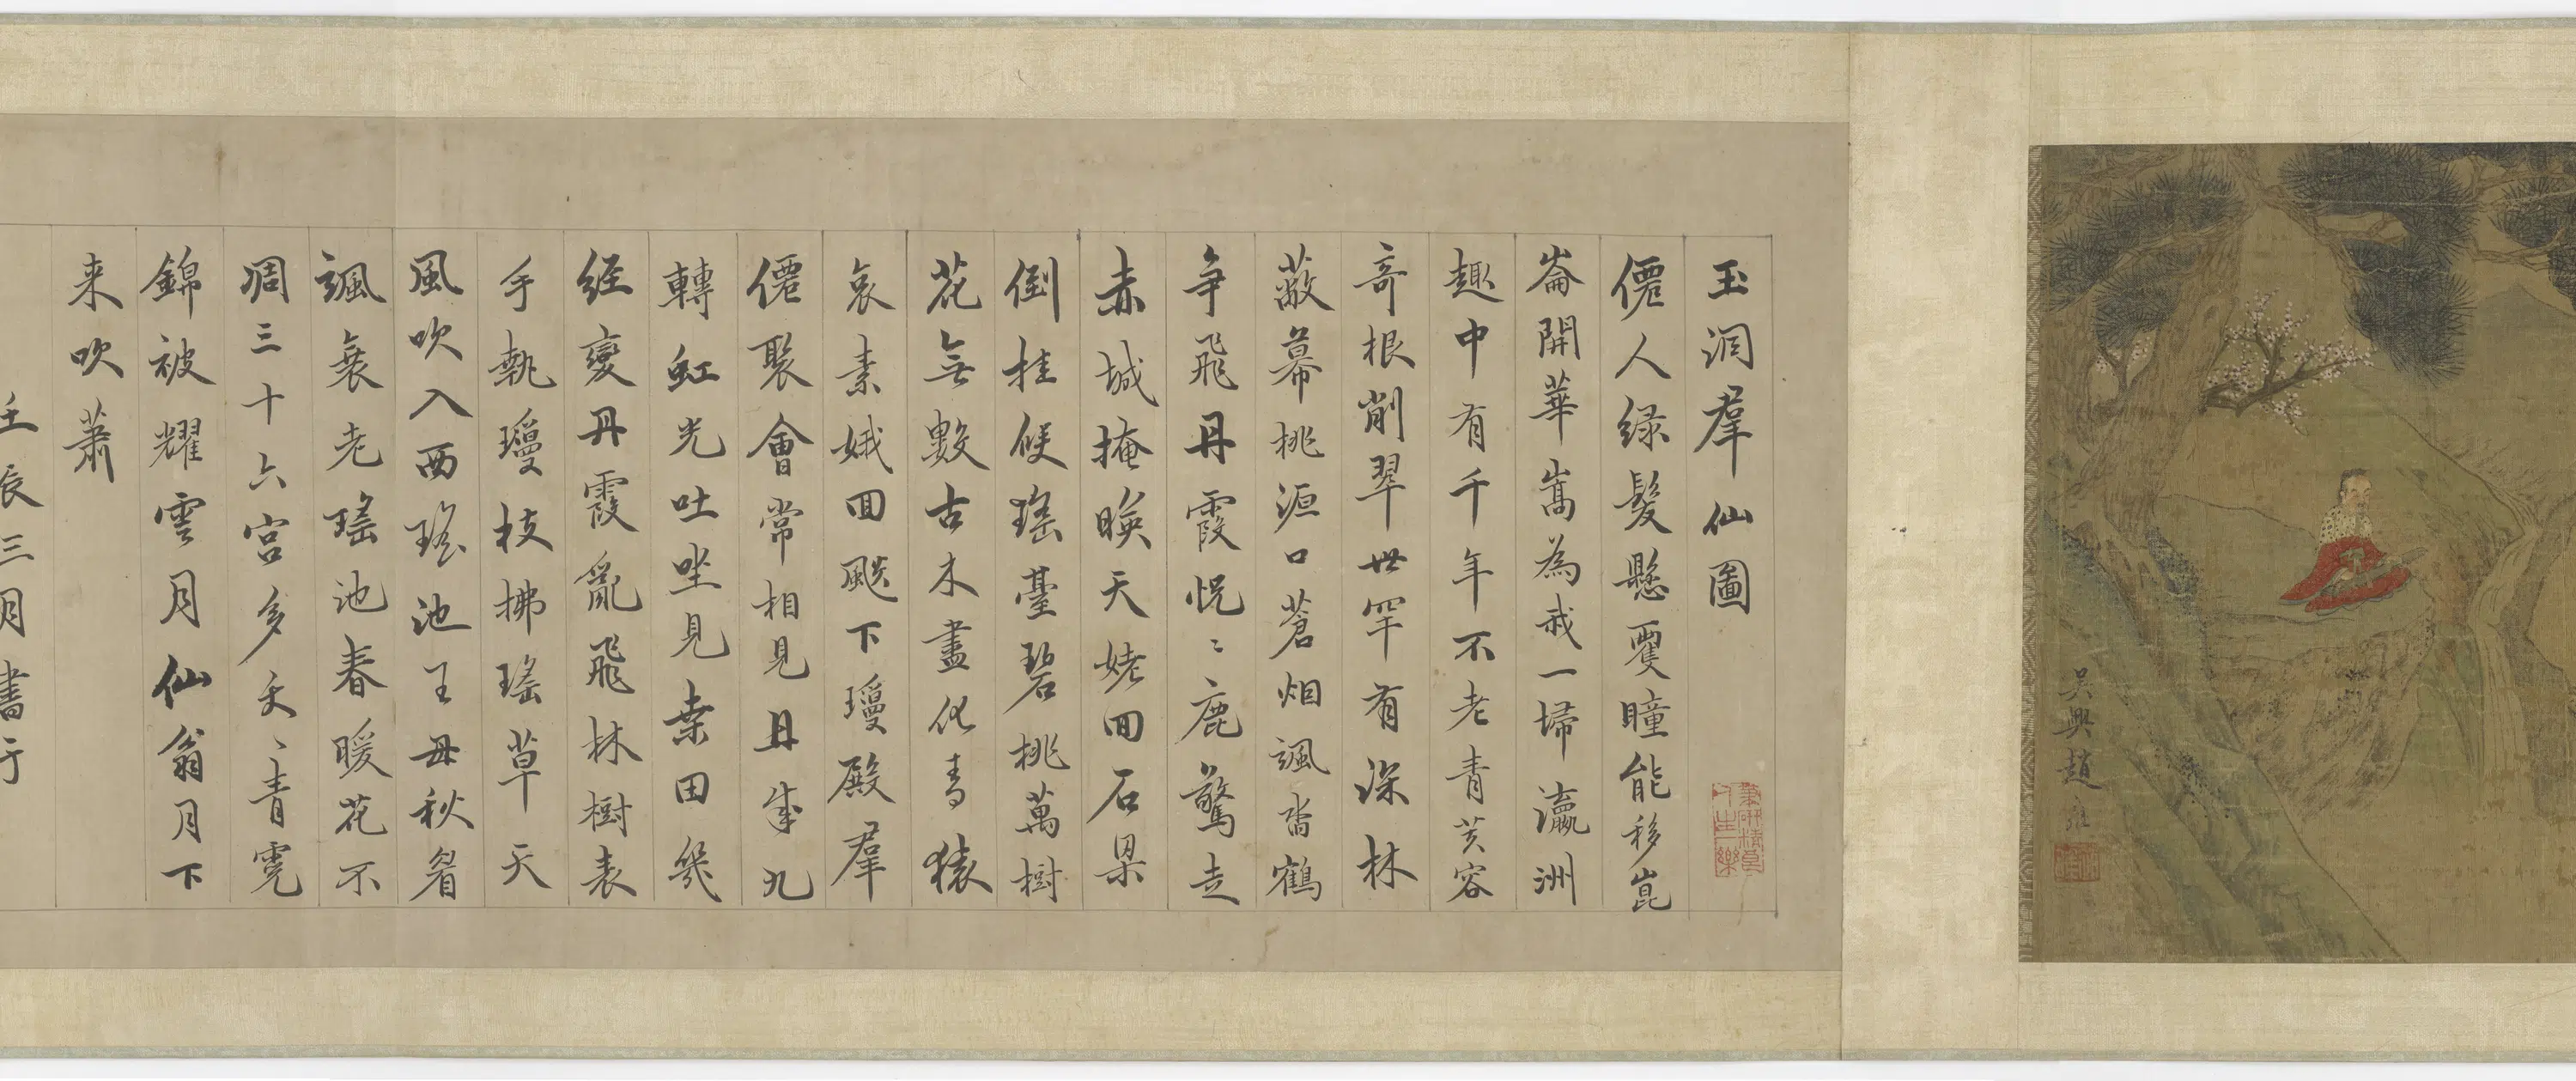 吳興趙雍
玉洞羣仙圖
僊人綠髮懸雙瞳能移崑
崙開華嵩為我一掃瀛洲
趣中有千年不老青芙容
奇根削翠世罕有深林
蔽幕桃源口蒼烟颯沓鶴
爭飛丹霞恍〻鹿驚走
赤城掩暎天姥回石梁
倒挂候瑤臺碧桃萬樹
花無數古木盡化青猿
哀素娥回飈下瓊殿羣
僊聚會常相見丑成九
轉虹光吐坐見桑田幾
經變丹霞亂飛林樹表
手執瓊枝拂瑤草天
風吹入西瑤池王母秋眉
颯衰老瑤池春暖花不
凋三十六宮多夭〻青霓
錦被耀雲月仙翁月下
来吹蕭
壬辰三月書于